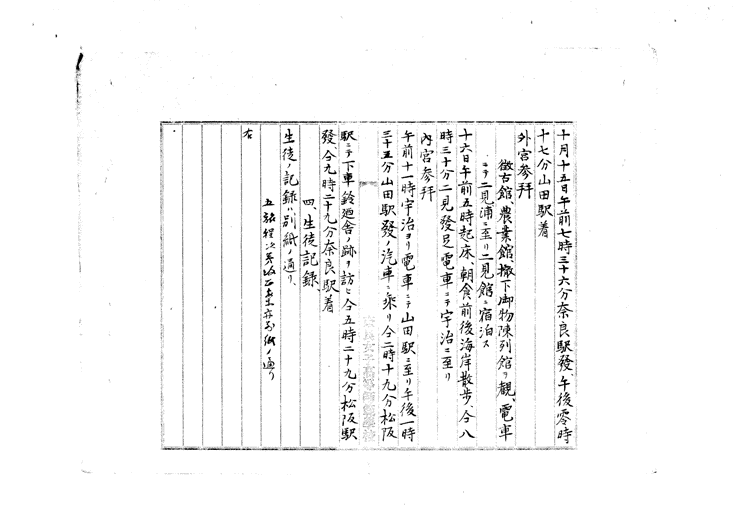 十月十五日午前七時三十六分奈良駅發、午後零時
十七分山田駅着
外宮参拜
徴古館、農業館、撤下御物陳列館ヲ観、電車
ニテ二見浦ニ至リ二見館ニ宿泊ス
十六日午前五時起床、朝食前後海岸散歩、仝八
時三十分二見發足電車ニテ宇治ニ至リ
内宮参拜
午前十一時宇治ヨリ電車ニテ山田駅ニ至リ午後一時
三十五分山田駅發ノ汽車ニ乘リ仝二時十九分松阪
駅ニテ下車鈴廼舎ノ跡ヲ訪ヒ仝五時二十九分松阪駅
發仝九時二十九分奈良駅着
四、生徒記録
生徒ノ記録ハ別紙ノ通リ、
五、旅程次第 別紙ノ通リ
右
奈良女子高等師範學校